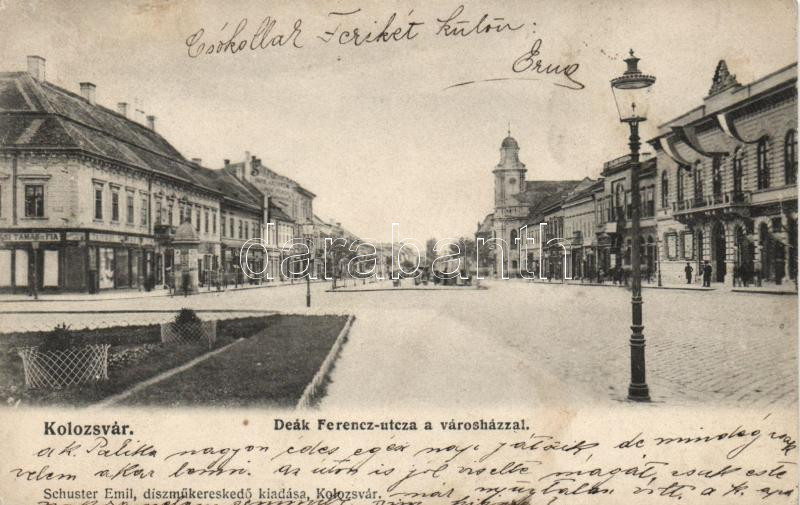 Csókollar Ferikét külön:
Erna
TAMÁS FIA
darabanth
Kolozsvár.
Deák Ferencz-utcza a városházzal.
a k. Palika nagyon édes egész nap játszik de mindég
velem akar lenni. az úton is jól viselte magát csak este
Schuster Emil, díszműkereskedő kiadása, Kolozsvár. már nyügtalan vólt. a k.